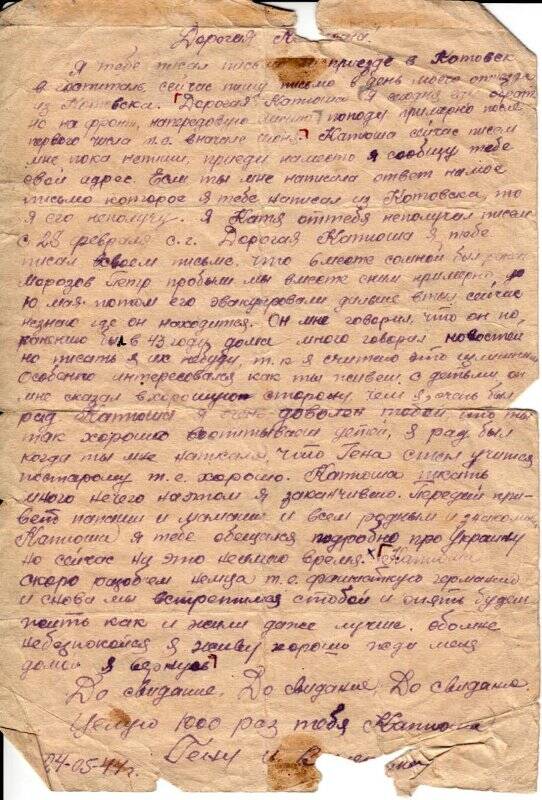 Дорогая Катюша.
Я тебе писал письмо приезде в Котовск
в госпиталь, сейчас пишу письмо в день моего отъезда
из Котовска. Дорогая Катюша я сегодня еду обрат
но на фронт, на передовую линию попаду примерно после
первого числа т.е. вначале июня. Катюша сейчас писем
мне пока непиши, приеду наместо я сообщу тебе
свой адрес. Если ты мне написала ответ на мое
письмо которое я тебе написал из Котовска, то
я его неполучу. я Катя оттебя неполучал писем
с 28 февраля с.г. Дорогая Катюша я тебе
писал всвоем письме, что вместе сомной был
Морозов Петр пробыли мы вместе сним примерно до
10 мая потом его эвакуировали дальше втыл сейчас
незнаю где он находится. Он мне говорил, что он по
ранению был в 43 году дома много говорил новостей
но писать я их небуду, т.к я считаю это
Особенно интересовался как ты живеш с детьми он
мне сказал вхорошую сторону чем я очень был
рад Катюша я очень доволен тобой что ты
так хорошо воспитываеш детей, я рад был
когда ты мне написала, что Гена стал учится
постарому т.е. хорошо. Катюша писать
много нечего наэтом я заканчиваю. Передай при-
вет папаши и мамаши и всем родным и знакомым
Катюша я тебе обещался подробно про Украину
но сейчас на это неимею время. Катюша
скоро разобьем немца т.е. фашисткую германию
и снова мы встретимся стобой и опять будем
жить как и жили даже лучше. обомне
небезпокойся я живу хорошо жди меня
домой я вернусь
До свидание, До свидание, До свидание.
Целую 1000 раз тебя Катюша
Гену и
24-05-44г.